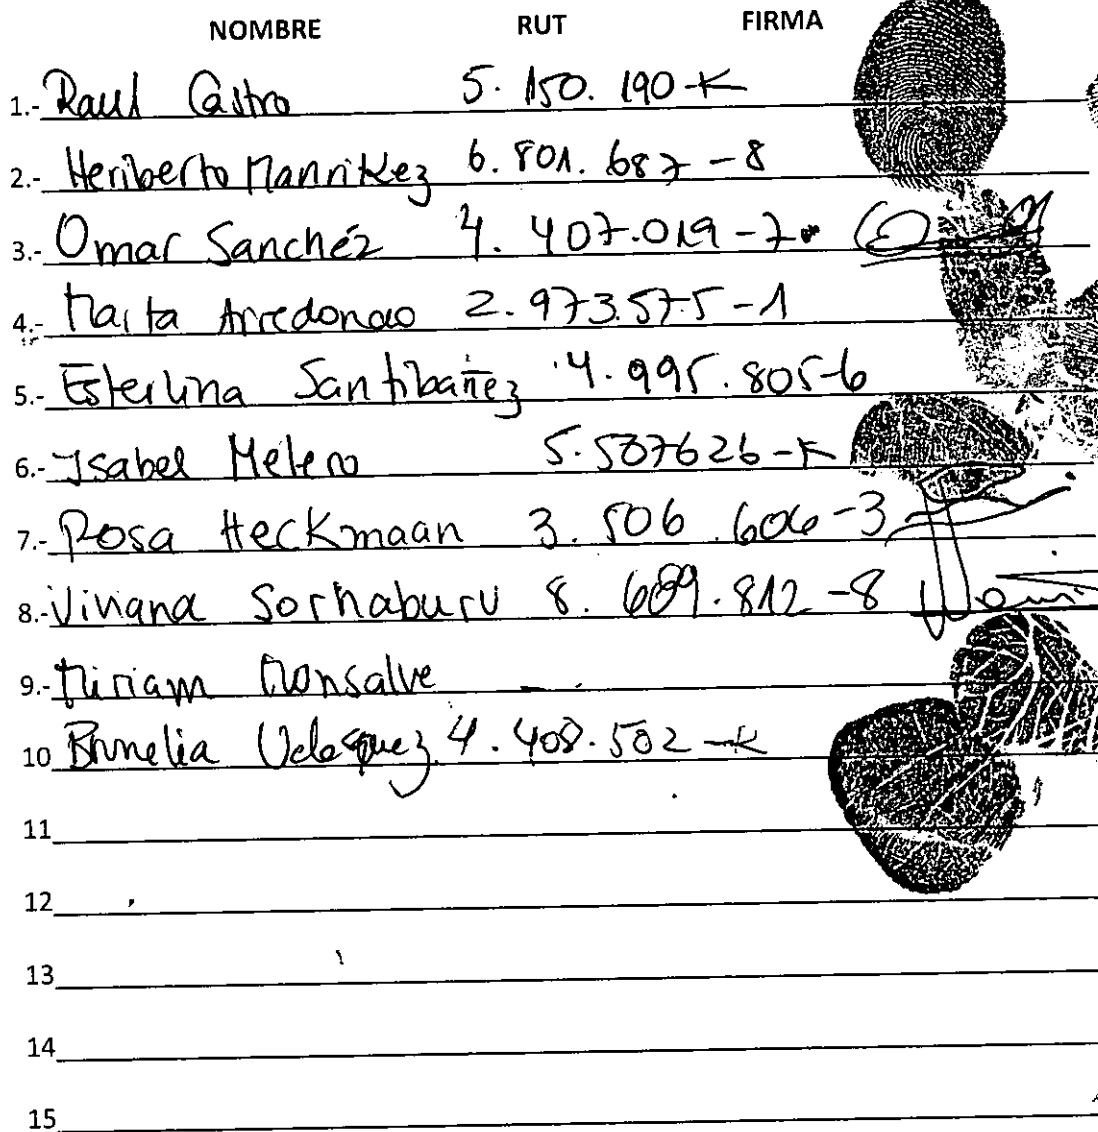 NOMBRE RUT FIRMA
1.- Raul Castro 5.150.190-K
2.- Heriberto Manrikez 6.801.687-8
3.- Omar Sanchéz 4.407.019-7.
4.- Marta Arredondo 2.973.575-1
5.- Esterlina Santibañez 4.995.805-6
6.- Isabel Melero 5.507626-K
7.- Rosa Heckmaan 3.506.606-3
8.- Viviana Sorhaburu 8.689.812-8
9.- Miriam Monsalve -.
10 Velasquez 4.408.502-K
11
12
13
14
15